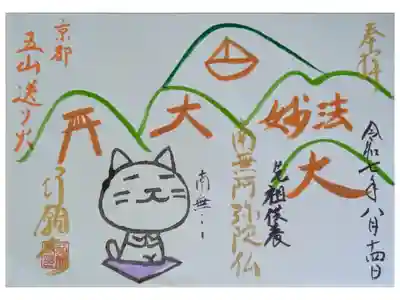 奉拝
令和七年八月十四日
妙法
大
先祖供養
南無阿弥陀仏
大
南無・・
京都
五山送り火